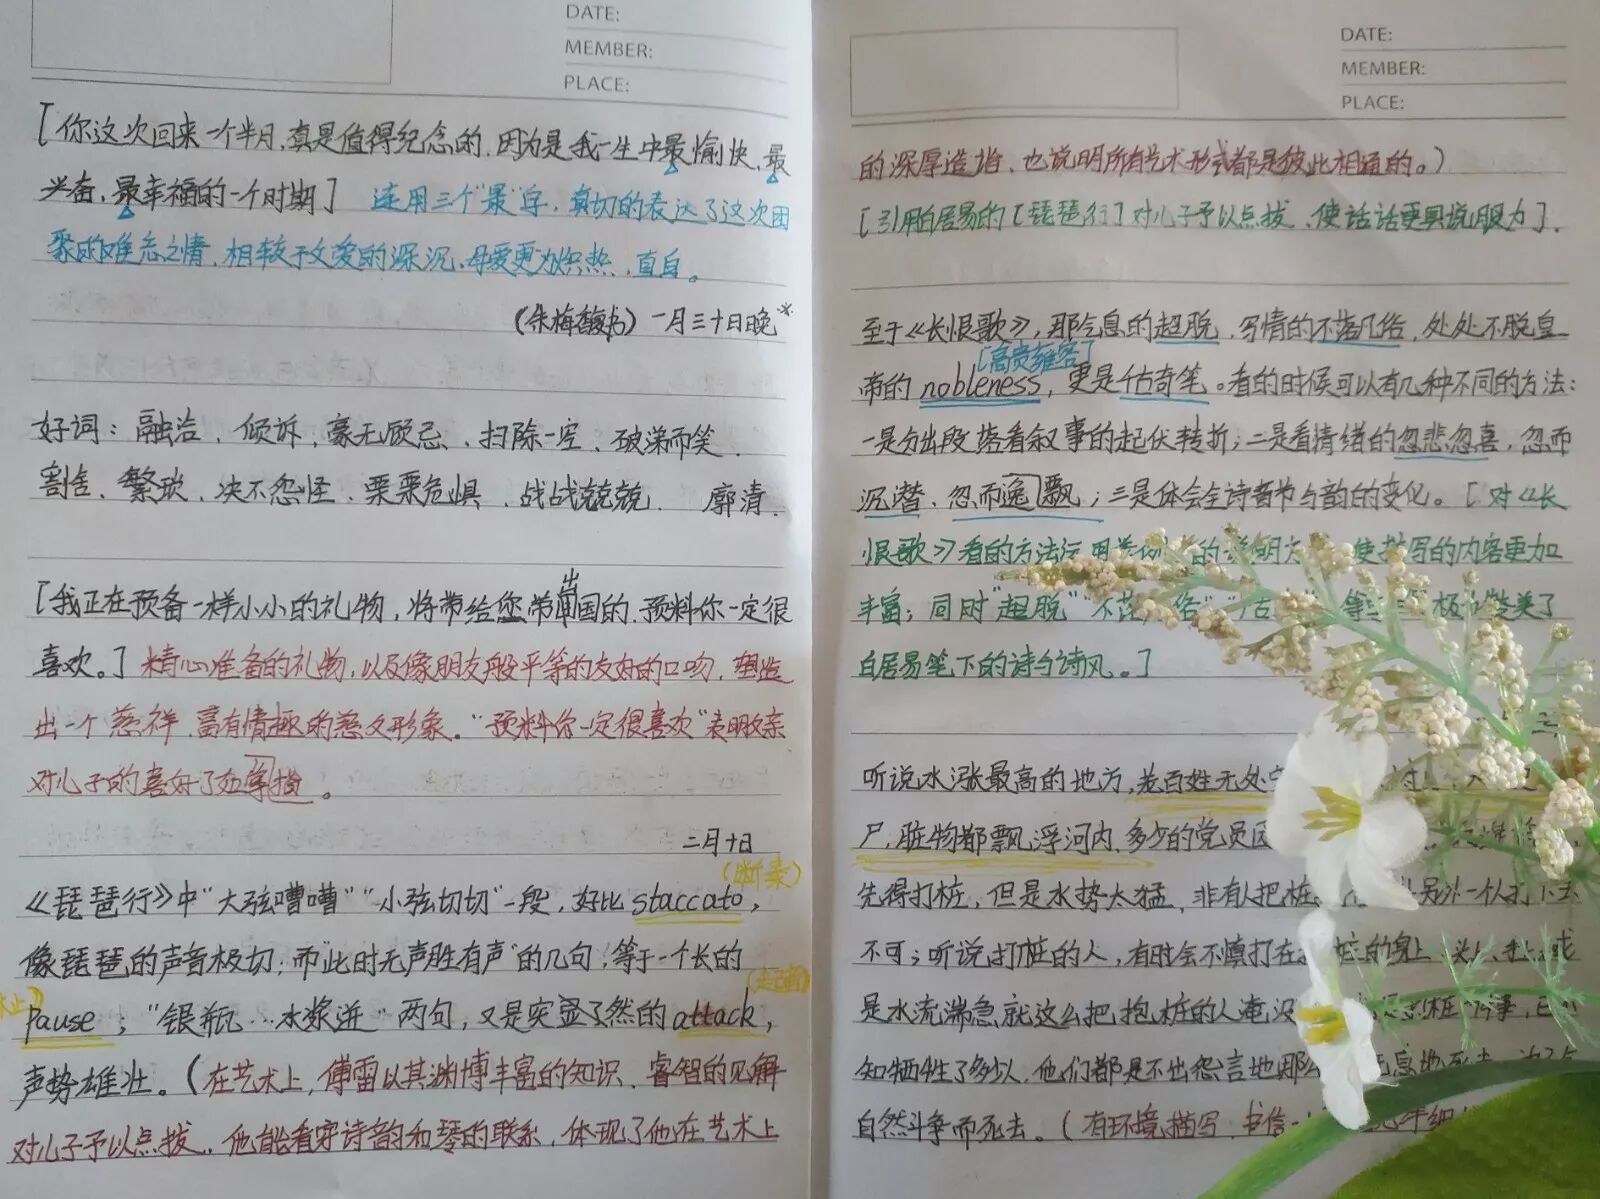 DATE:
MEMBER:
PLACE:
[你这次回来一个半月,真是值得纪念的.因为是我一生中最愉快,最
兴奋,最幸福的一个时期] 连用三个"最"字,真切的表达了这次团
聚的难忘之情,相较于父爱的深沉,母爱更为炽热、直白。
(朱梅馥书) 一月三十日晚*
好词:融洽、倾诉,毫无顾忌、扫除一空、破涕而笑、
割舍、繁琐、决不怨怪、栗栗危惧、战战兢兢、廓清.
[我正在预备一样小小的礼物,将带给您带出国的.预料你一定很
喜欢。] 精心准备的礼物,以及像朋友般平等的友好的口吻,塑造
出一个慈祥.富有情趣的慈父形象。"预料你一定很喜欢"表明父亲
对儿子的喜好了如掌指。
二月十日
(断奏)
《琵琶行》中"大弦嘈嘈""小弦切切"一段,好比staccato,
像琵琶的声音极切;而"此时无声胜有声"的几句,等于一个长的
Pause;"银瓶…水浆迸"两句,又是突显了然的attack,
声势雄壮。(在艺术上,傅雷以其渊博丰富的知识、睿智的见解
对儿子予以点拨,他能看穿诗韵和琴的联系,体现了他在艺术上
DATE:
MEMBER:
PLACE:
的深厚造指、也说明所有艺术形式都是彼此相通的。)
[引用白居易的[琵琶行]对儿子予以点拨、使话话更具说服力].
至于《长恨歌》,那气息的超脱,写情的不落凡俗,处处不脱皇
[高贵雍容]
帝的nobleness,更是千古奇笔。看的时候可以有几种不同的方法:
一是分出段落看叙事的起伏转折;二是看情绪的忽悲忽喜,忽而
沉潜、忽而逸飘;三是体会全诗音节与韵的变化。[对《长
恨歌》看的方法运用 的 明 使描写的内容更加
丰富;同时"超脱""不落 俗" 古 等 极 赞美了
白居易笔下的诗与诗风。]
听说水涨最高的地方,老百姓无处
尸,脏物都飘浮河内、多少的党员
先得打桩,但是水势太猛,非有人把桩 另外一个人打下去
不可;听说打桩的人,有时会不慎打在 桩的身上、头上、手上,或
是水流湍急就这么把抱桩的人淹没
知牺牲了多少,他们都是不出怨言地那么 无息地死去,为了与
自然斗争而死去。(有环境描写,书信